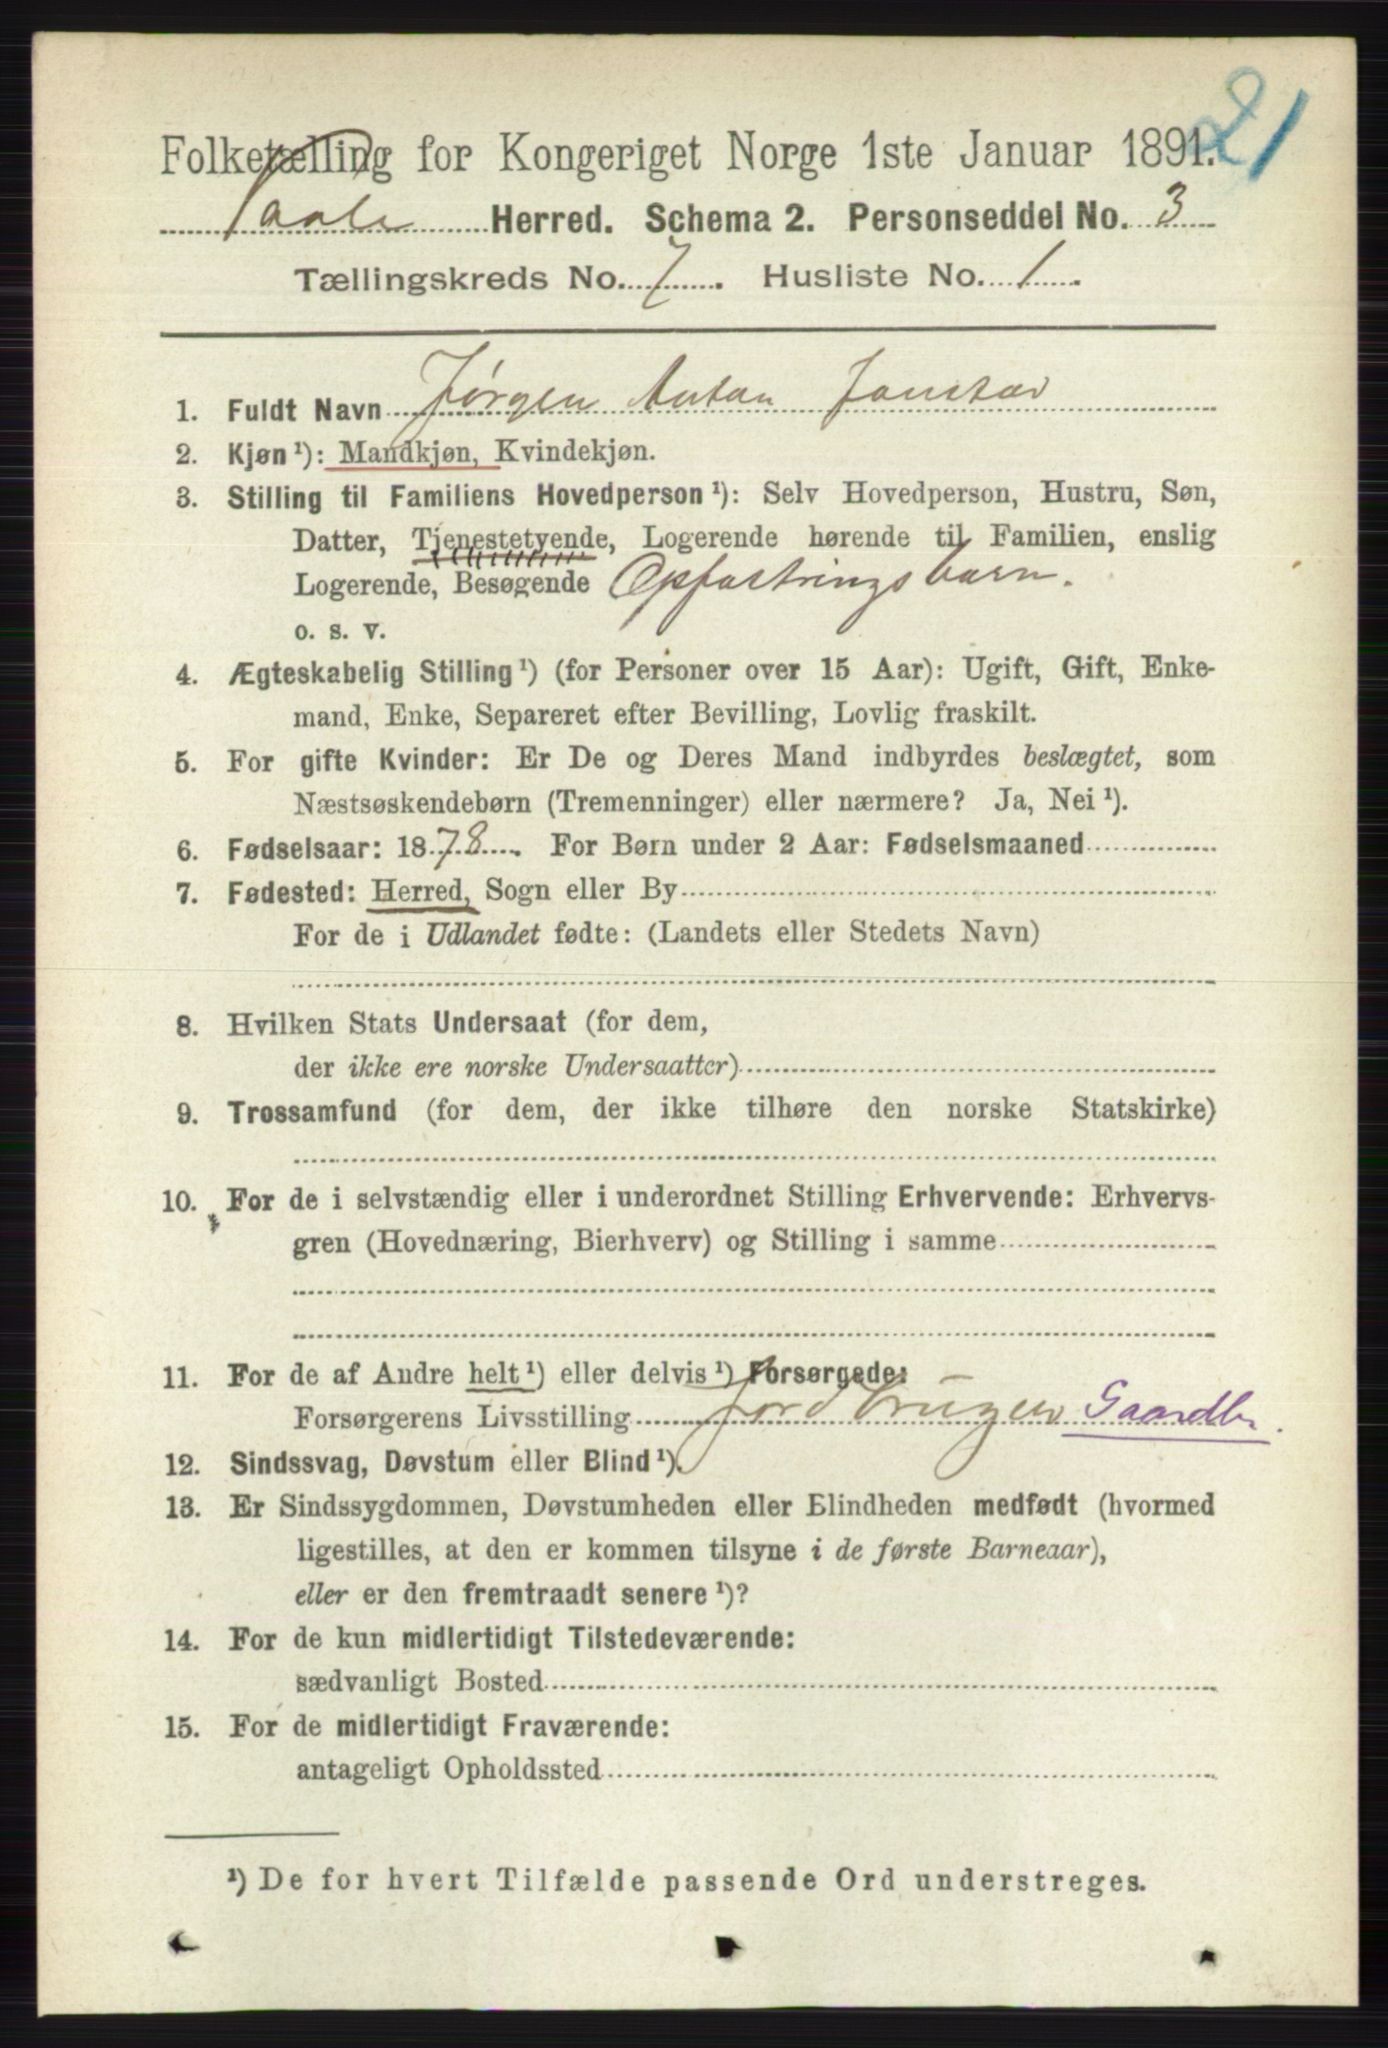 21
Folketælling for Kongeriget Norge 1ste Januar 1891.
Vaale Herred. Schema 2. Personseddel No. 3
Tællingskreds No. 7. Husliste No. 1.
1. Fuldt Navn Jørgen Anton
2. Kjøn ¹): Mandkjøn, Kvindekjøn.
3. Stilling til Familiens Hovedperson ¹): Selv Hovedperson, Hustru, Søn,
Datter, Tjenestetyende, Logerende hørende til Familien, enslig
Logerende, Besøgende Opfostringsbarn.
o. s. v.
4. Ægteskabelig Stilling ¹) (for Personer over 15 Aar): Ugift, Gift, Enke-
mand, Enke, Separeret efter Bevilling, Lovlig fraskilt.
5. For gifte Kvinder: Er De og Deres Mand indbyrdes beslægtet, som
Næstsøskendebørn (Tremenninger) eller nærmere? Ja, Nei ¹).
6. Fødselsaar: 1878. For Børn under 2 Aar: Fødselsmaaned
7. Fødested: Herred, Sogn eller By
For de i Udlandet fødte: (Landets eller Stedets Navn)
8. Hvilken Stats Undersaat (for dem,
der ikke ere norske Undersaatter)
9. Trossamfund (for dem, der ikke tilhøre den norske Statskirke)
10. For de i selvstændig eller i underordnet Stilling Erhvervende: Erhvervs-
gren (Hovednæring, Bierhverv) og Stilling i samme
11. For de af Andre helt ¹) eller delvis ¹) Forsørgede:
Forsørgerens Livsstilling Jordbruger Gaardbr.
12. Sindssvag, Døvstum eller Blind ¹).
13. Er Sindssygdommen, Døvstumheden eller Blindheden medfødt (hvormed
ligestilles, at den er kommen tilsyne i de første Barneaar),
eller er den fremtraadt senere ¹)?
14. For de kun midlertidigt Tilstedeværende:
sædvanligt Bosted
15. For de midlertidigt Fraværende:
antageligt Opholdssted
¹) De for hvert Tilfælde passende Ord understreges.